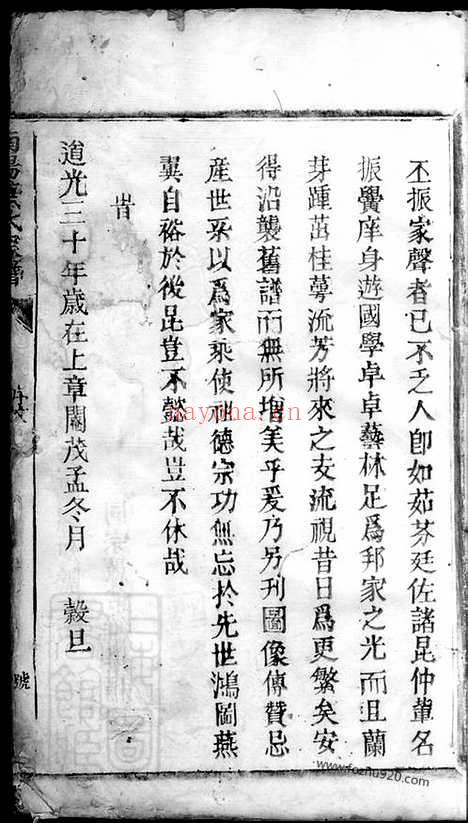 丕振家聲者已不乏人卽如茹芬廷佐諸昆仲輩名
振黌庠身遊國學卓卓藝林足爲邦家之光而且蘭
芽踵茁桂萼流芳將來之支流視昔日爲更繁矣安
得沿襲舊譜而無所增美乎爰乃另刋圖像傳贊忌
産世系以爲家乘使祖德宗功無忘於先世鴻圖燕
翼自裕於後昆豈不懿哉豈不休哉
旹
道光三十年歲在上章閹茂孟冬月 穀旦
氏宗譜
nayona.cn
www.fozhu920.com